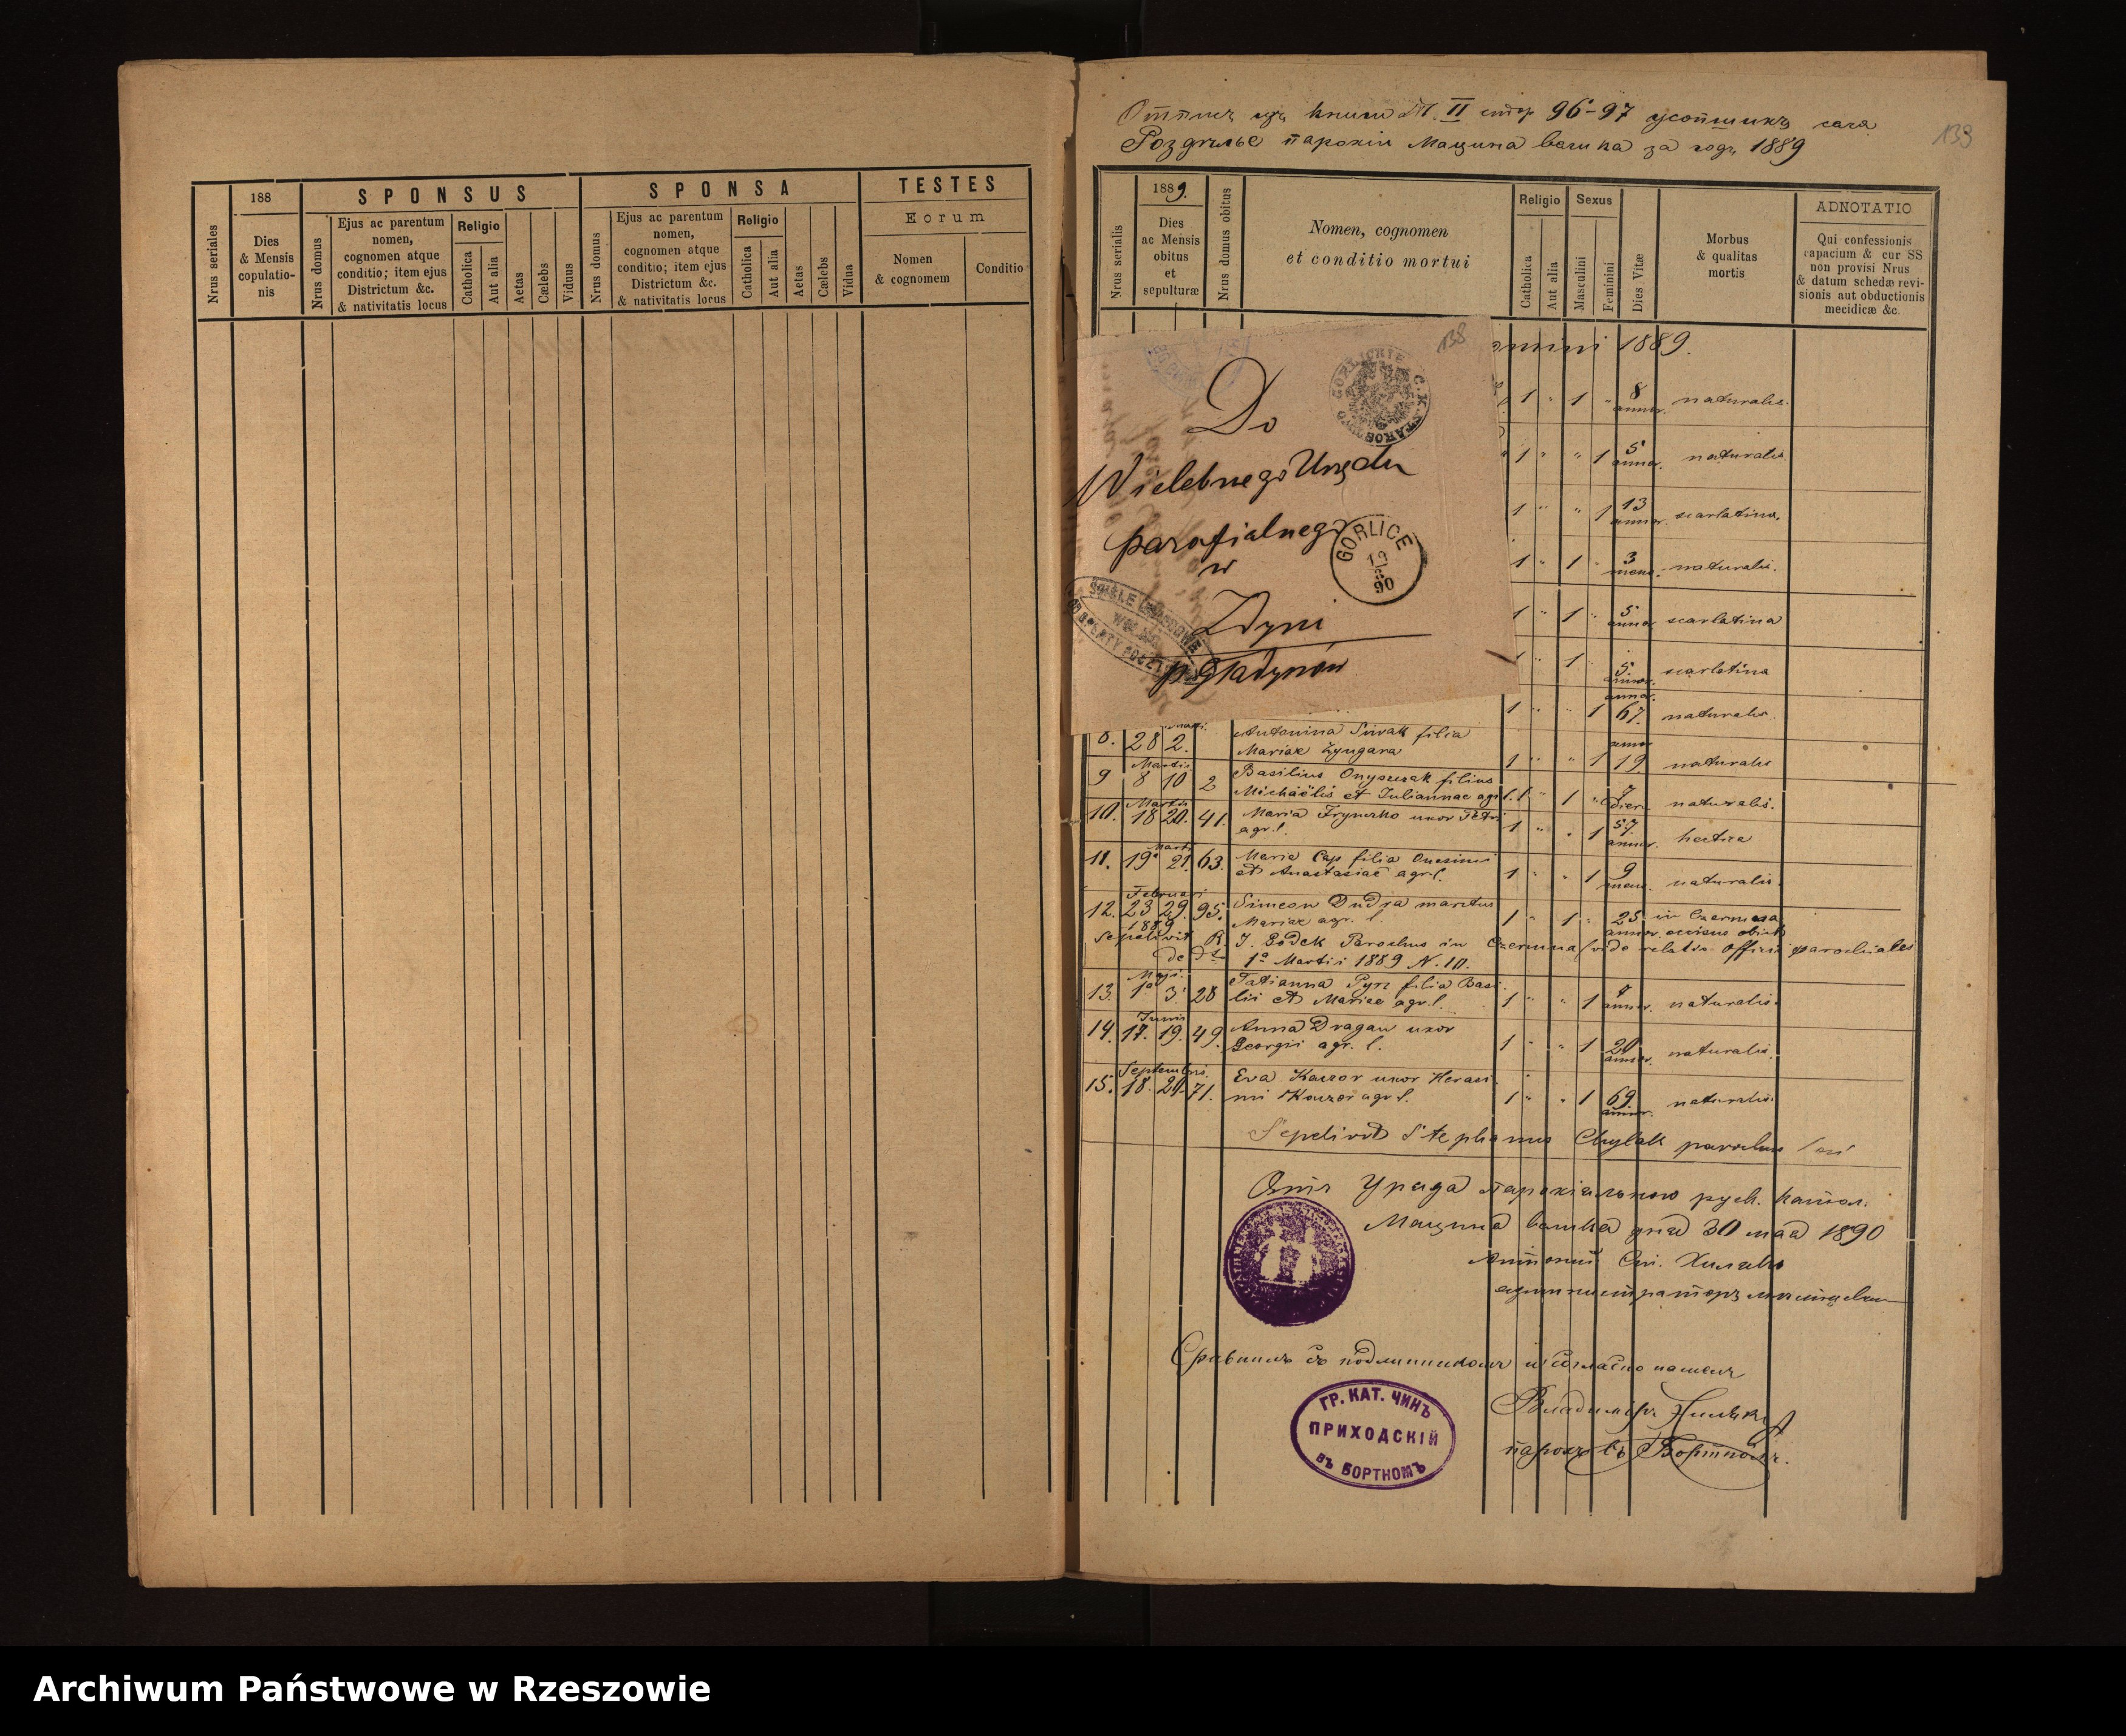 188
SPONSUS
SPONSA
TESTES
Eorum
Nrus seriales
Dies & Mensis copulatio-nis
Nrus domus
Ejus ac parentum nomen, cognomen atque conditio; item ejus Districtum &c. & nativitatis locus
Religio
Catholica
Aut alia
Aetas
Cælebs
Viduus
Nrus domus
Ejus ac parentum nomen, cognomen atque conditio; item ejus Districtum &c. & nativitatis locus
Religio
Catholica
Aut alia
Aetas
Cælebs
Vidua
Nomen & cognomem
Conditio
139
книги Т. II стор 96-97 усопшихъ села
Роздѣлье парохіи Мацина велика за годъ 1889
Nrus serialis
1889.
Dies ac Mensis obitus et sepulturæ
Nrus domus obitus
Nomen, cognomen
et conditio mortui
Religio
Catholica
Aut alia
Sexus
Masculini
Feminini
Dies Vitæ
Morbus & qualitas mortis
ADNOTATIO
Qui confessionis capacium & cur SS non provisi Nrus & datum schedæ revi-sionis aut obductionis mecidicæ &c.
1889.
138
Do
Wielebnego Urzędu
parafialnego
w
Zdyni
p. Gładyszów
GORLICE
90
1 " 1 " 8 annor. naturalis.
1 " " 1 5 annor. naturalis
1 " " 1 13 annor. scarlatina.
1 " 1 " 3 mens. naturalis.
1 " 1 " 5 annor scarlatina
1 5. annor. scarlatina
1 " " 1 annor. 67. naturalis.
8. 28 2. Antonina Siwak filia
Mariae Żyngara 1 " " 1 annor 19 naturalis
9 Martii 8 10 2 Basilius Onyszczak filius
Michaëlis et Juliannae agr. l. 1 " 1 " 7 dier. naturalis.
10. Martii 18 20. 41. Maria Hrynczko uxor Petri
agr. l. 1 " " 1 57 annor. hectica
11. Martii 19 21. 63. Maria Cap filia Onesimi
et Anastasiae agr. l. 1 " " 1 9 mens. naturalis.
12. Februari 23 29. 95. Simeon Dudra maritus
Mariae agr. l. 1 " 1 " 25 annor. in Czermna occisus obiit
1889 Sepelivit R. J. Godek Parochus in Czermna vide relatio Officii parochiales
de dto 1º Martii 1889 N. 10.
13. Maji 1º 3. 28 Tatianna Pyrz filia Basi-
lii et Mariae agr. l. 1 " " 1 annor. naturalis.
14. Junii 17. 19. 49. Anna Dragan uxor
Georgii agr. l. 1 " " 1 20 annor. naturalis.
15. Septembris 18. 20. 71. Eva Kaczor uxor Herasi
mi Kaczor agr l. 1 " " 1 69 annor. naturalis.
Sepelivit Stephanus Chylak parochus loci
Отъ Уряда парохіального руск. катол.
Мацина велика дня 30 мая 1890
Антоній Хилякъ
администраторъ
Сравнилъ съ подлинникомъ и согласно нашелъ
ГР. КАТ. ЧИНЪ
ПРИХОДСКІЙ
ВЪ БОРТНОМЪ
Владиміръ Хилякъ
парохъ въ Бортномъ.
Archiwum Państwowe w Rzeszowie